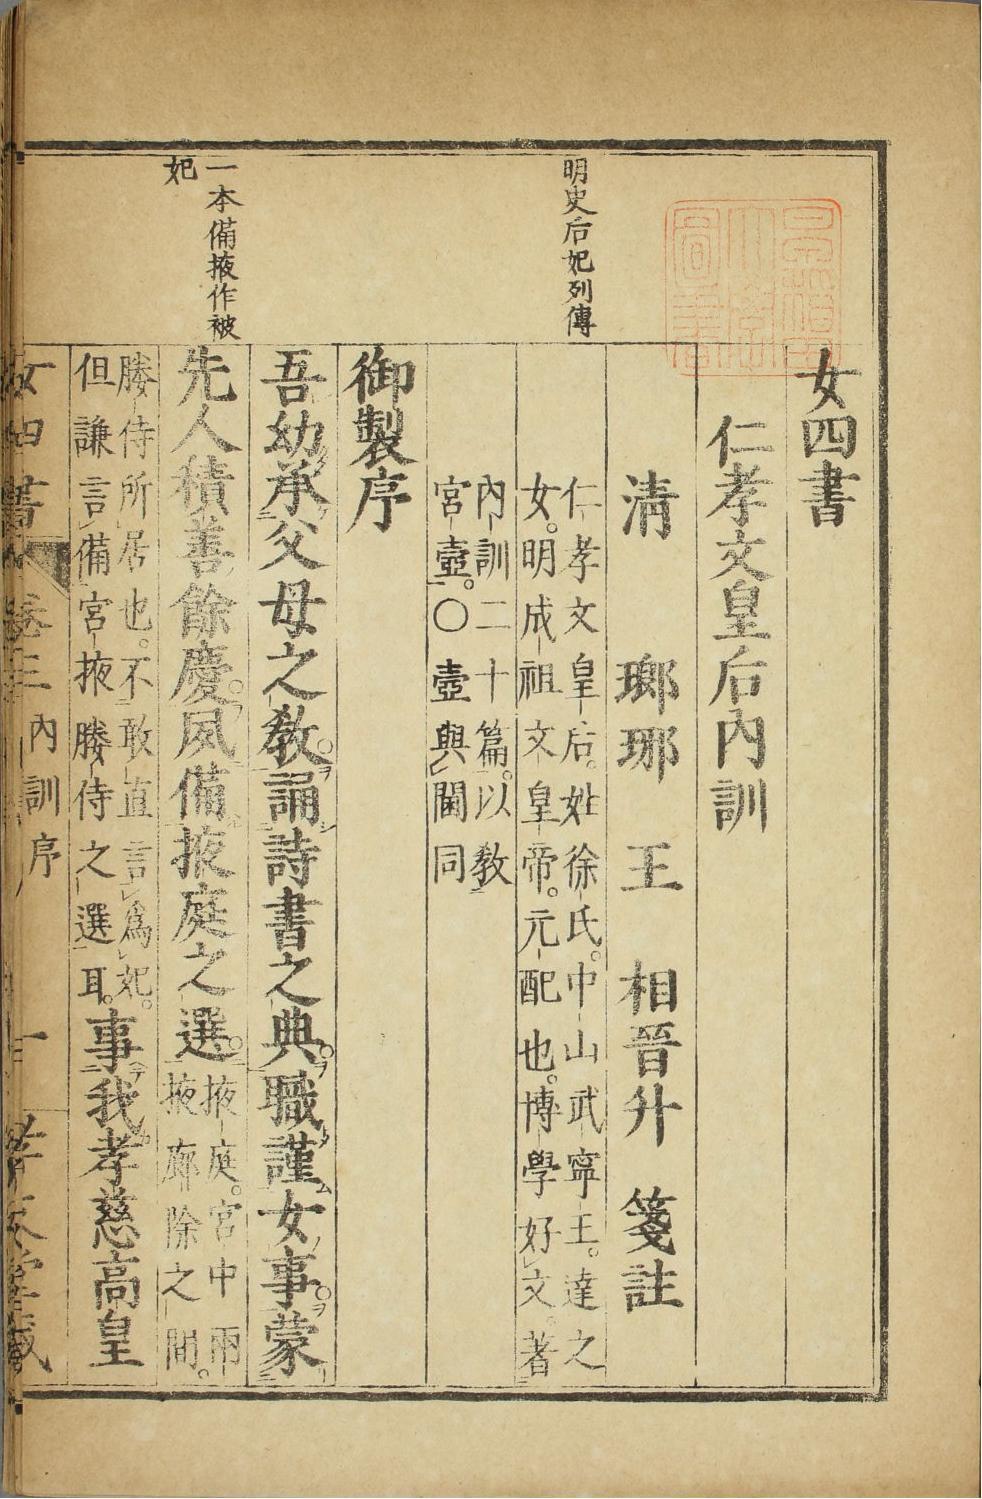 女四書
仁孝文皇后內訓
清 瑯琊 王 相晉升 箋註
明史后妃列傳
仁孝文皇后。姓徐氏。中山武寧王。達之
女。明成祖文皇帝。元配也。博學好文。著
內訓二十篇。以教
宮壼。〇壼與閫同
御製序
吾幼承父母之教。誦詩書之典。職謹女事。蒙
一本備掖作被
妃
先人積善餘慶。夙備掖庭之選。
掖庭。宮中兩
掖廊除之間。
媵侍所居也。不敢直言爲妃。
但謙言備宮掖媵侍之選耳。
事我孝慈高皇
女四書 卷三 內訓序 一